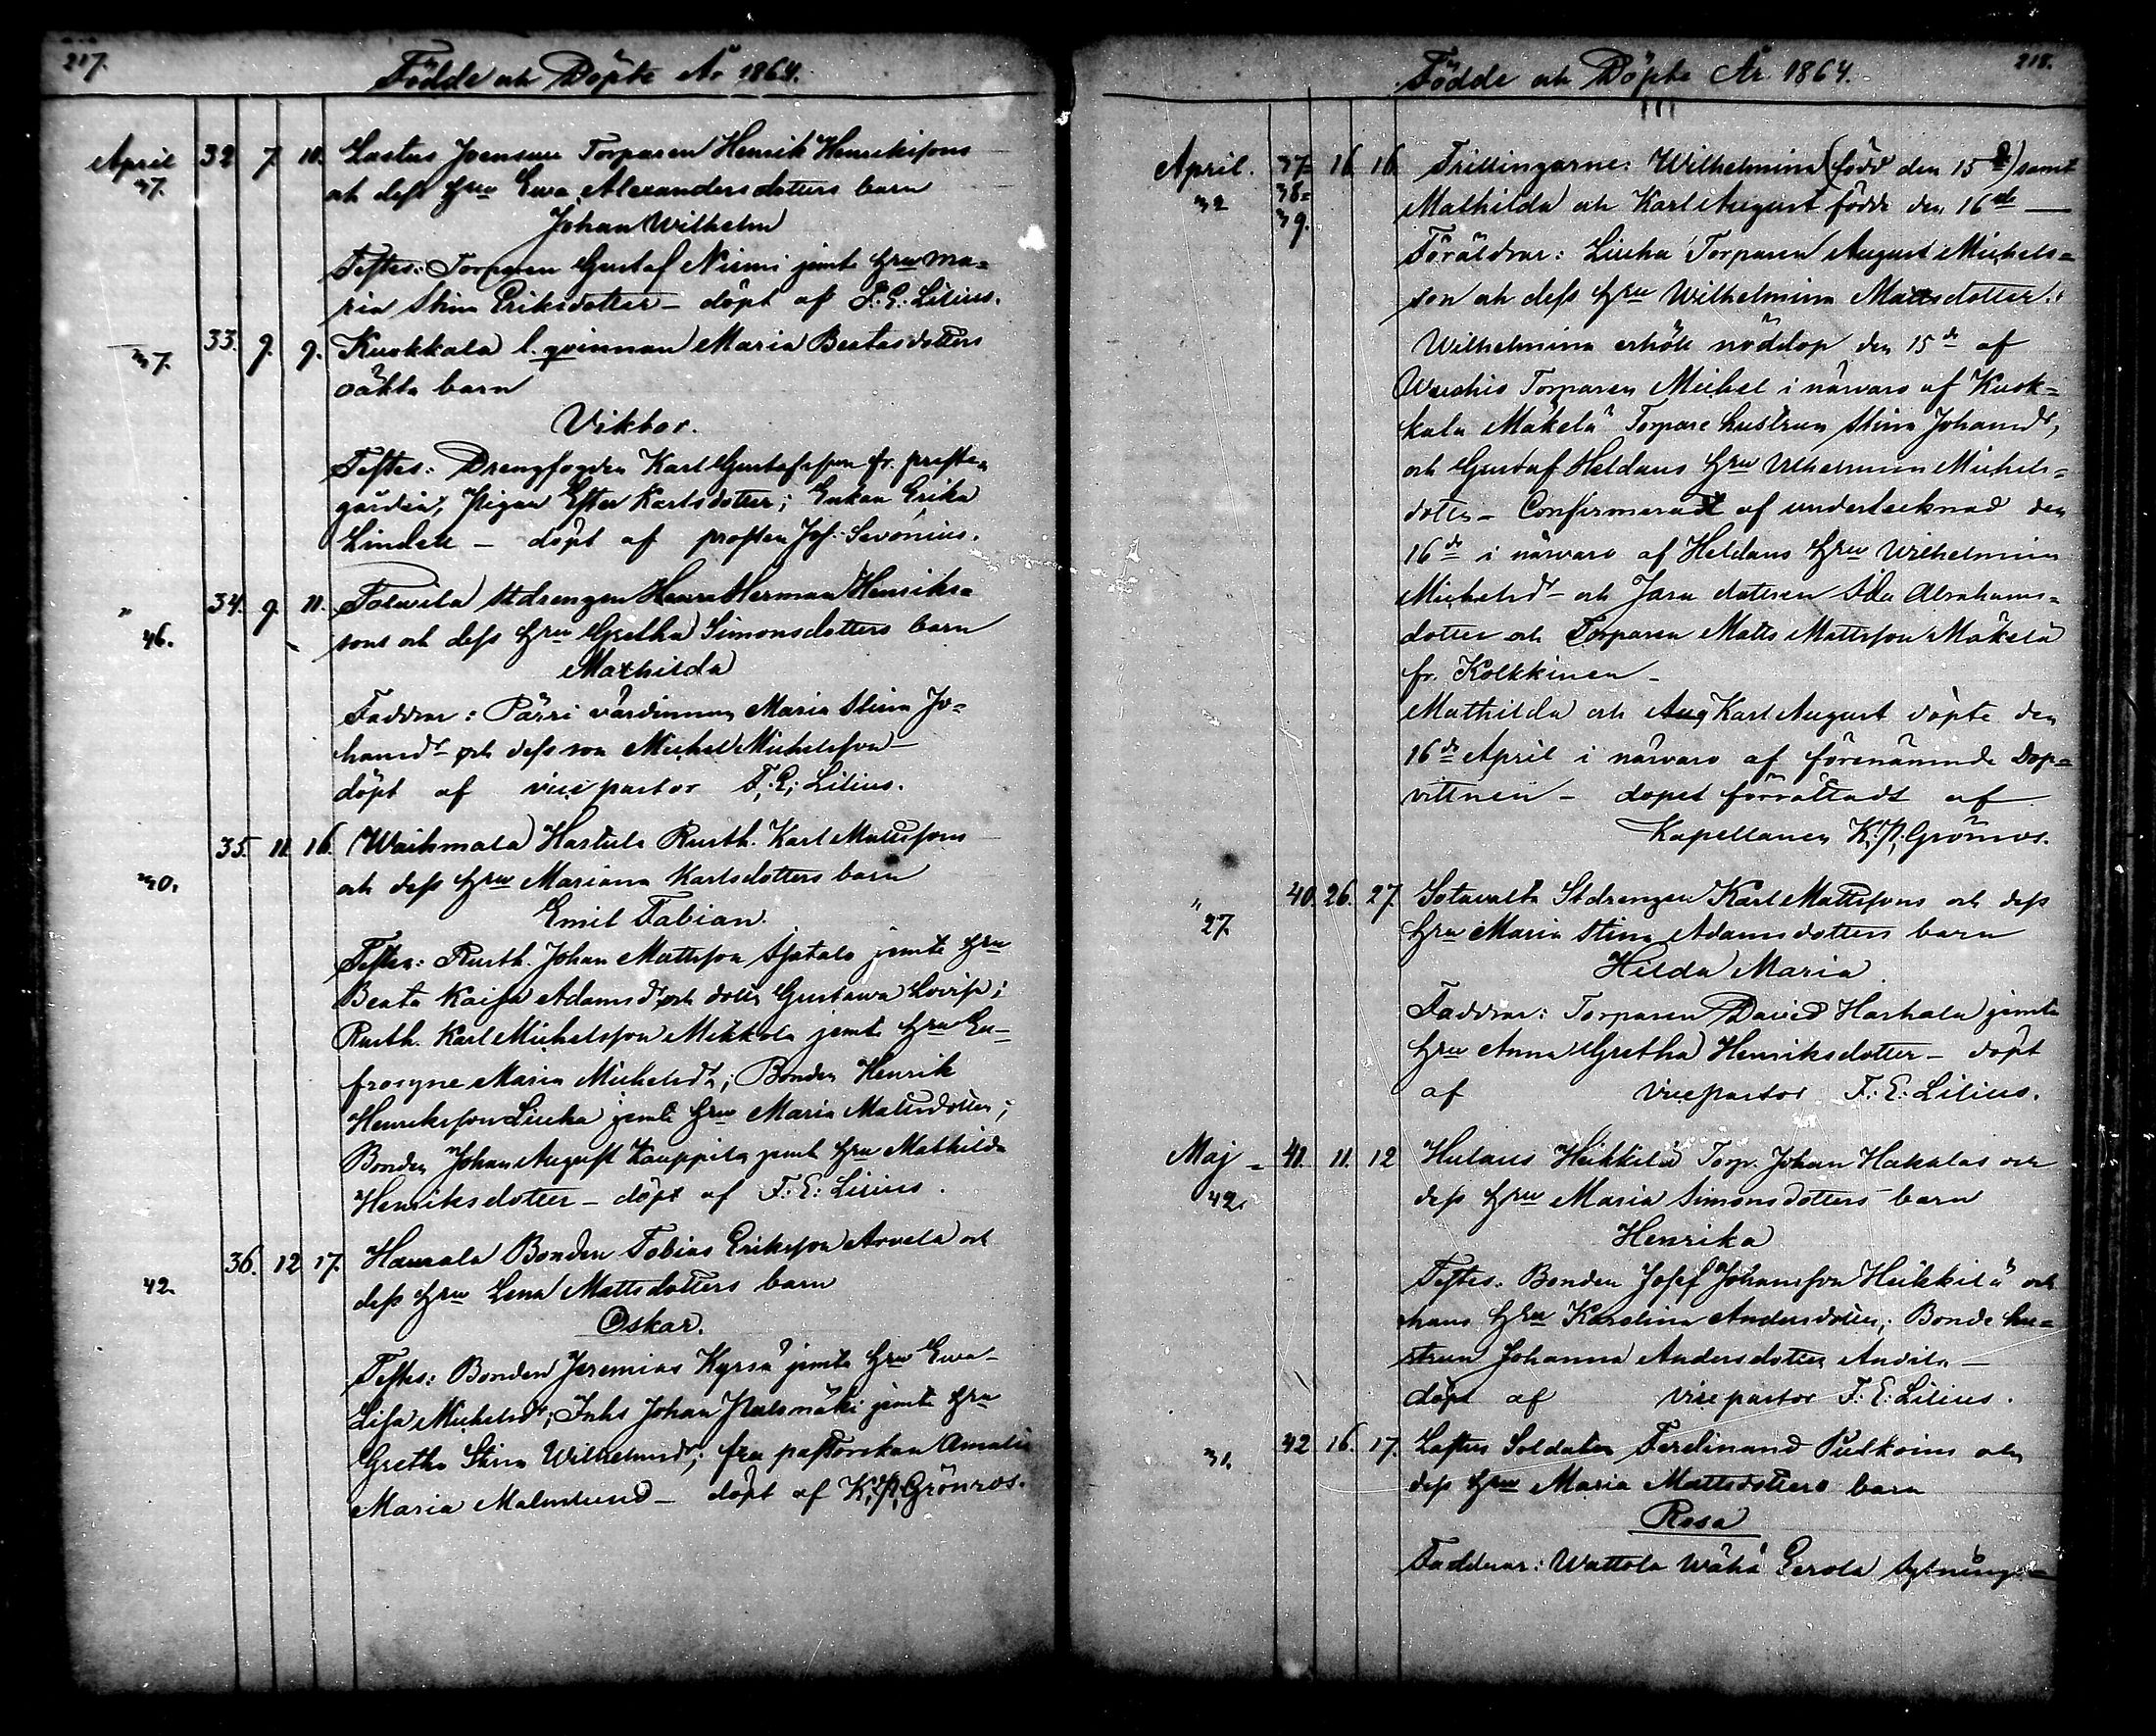 217.
Födde och Döpte År 1864.
April 32. 7. 10. Lastus Joensuu Torparen Henrik Henriksons
37. och dess hru Ewa Alexandersdotters barn
Johan Wilhelm
Testes: Torparen Gustaf Niemi jemte hru Ma=
ria Stina Eriksdotter – döpt af F. E. Lilius.
33. 9. 9. Kuokkala l. qvinnan Maria Beatasdotters
37. oäkta barn
Viktor.
Testes: Drengfogden Karl Gustafsson fr. preste=
gården, Pigan Ester Karlsdotter; Enkan Erika
Lindell – döpt af prosten Jos. Savonius.
" 34. 9. 11. Tolwila Stdrengen Herman Henriks=
46. sons och dess hru Gretha Simonsdotters barn
Mathilda
Faddrar: Pärri värdinnan Maria Stina Jo=
hansdr och dess son Michel Michelsson –
döpt af vice pastor F. E. Lilius.
35. 11. 16. Waihmala Hartula Rusth. Karl Mattssons
30. och dess hru Mariana Karlsdotters barn
Emil Fabian.
Testes: Rusth. Johan Mattsson jemte hru
Beata Kaisa Adamsdr och dotter Gustawa Lovisa;
Rusth. Karl Michelsson Mikkola jemte hru Eu=
frosyne Maria Michelsdr; Bonden Henrik
Henriksson Liuha jemte hru Maria Mattsdotter;
Bonden Johan August Kauppila jemte hru Mathilda
Henriksdotter – döpt af F. E. Lilius.
36. 12. 17. Haurala Bonden Tobias Eriksson Arvela och
42. dess hru Lena Mattsdotters barn
Oskar.
Testes: Bonden Jeremias Kyrsä jemte hru Ewa
Lisa Michelsdr; Inhs Johan Palomäki jemte hru
Gretha Stina Wilhelmsdr; fru pastorskan Amalia
Maria Malmlund – döpt af K. P. Grönroos.
218.
Födde och Döpte År 1864.
April. 37= 16. 16. Trillingarne: Wilhelmina (född den 15de) samt
32 38= Mathilda och Karl August födde den 16de —
39.
Föräldrar: Liuha Torparen August Michels=
son och dess hru Wilhelmina Mattsdotter.
Wilhelmina erhöll nöddop den 15de af
Torparen Michel i närvaro af Kuok=
kala Mäkelä Torpare hustrun Stina Johansdr,
och Gustaf Heldans hru Wilhelmina Michels=
dotter – Confirmeradt af undertecknad den
16de i närvaro af Heldans hru Wilhelmina
Michelsdr och Jara dottren Ida Abrahams=
dotter och Torparen Matts Mattsson Mäkelä
fr. Kolkkinen –
Mathilda och Aug Karl August döpte den
16de April i närvaro af förenämnde Dop=
vittnen – dopet förrättadt af
Kapellanen K. P. Grönroos.
" 40. 26. 27. Sotavalta Stdrengen Karl Mattssons och dess
27. hru Maria Stina Adamsdotters barn
Hilda Maria
Faddrar: Torparen David Harhala jemte
hru Anna Gretha Henriksdotter – döpt
af vicepastor F. E. Lilius.
Maj – 41. 11. 12 Hulaus Heikkilä Torp. Johan Hakalas och
42. dess hru Maria Simonsdotters barn
Henrika
Testes: Bonden Josef Johansson Heikkilä och
hans hru Karolina Andersdotter; Bonde hu=
strun Johanna Andersdotter Andila –
döpt af vicepastor F. E. Lilius.
42 16. 17. Lastus Soldaten Ferdinand och
31. dess hru Maria Mattsdotters barn
Rosa
Faddrar: Wattola Wähä Eerola Sytnings=